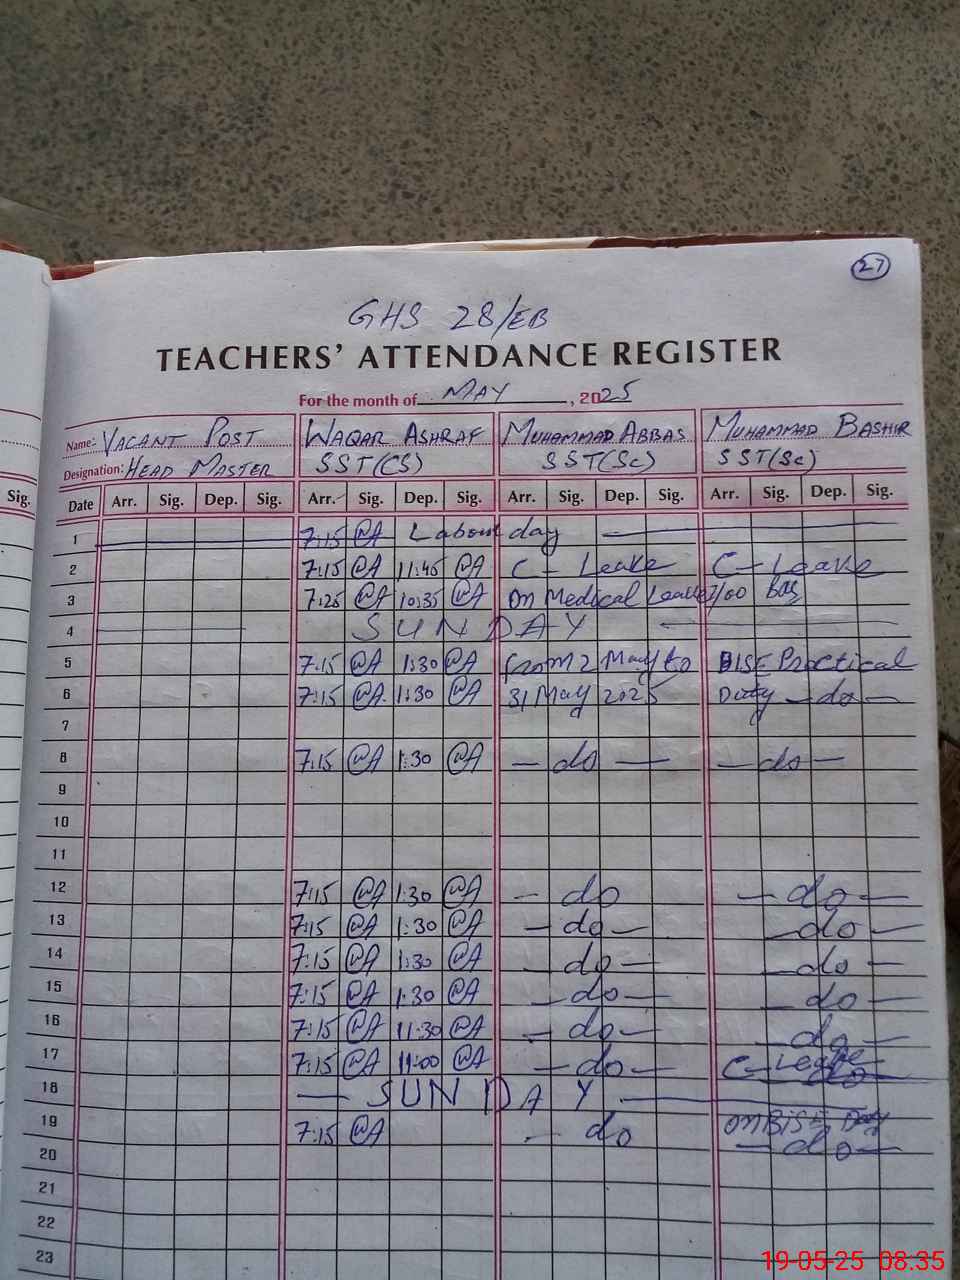 27
GHS 28/EB
TEACHERS' ATTENDANCE REGISTER
For the month of MAY, 2025
Name: VACANT POST WAQAR ASHRAF MUHAMMAD ABBAS MUHAMMAD BASHIR
Designation: HEAD MASTER SST(CS) SST(Sc) SST(Sc)
Sig. Date Arr. Sig. Dep. Sig. Arr. Sig. Dep. Sig. Arr. Sig. Dep. Sig. Arr. Sig. Dep. Sig.
1 7:15 @A Labour day
2 7:15 @A 11:45 @A C - Leave C - Leave
3 7:25 @A 10:35 @A On Medical Leave 7/00
4 SUNDAY
5 7:15 @A 1:30 @A from 2 May to BISE Practical
6 7:15 @A 1:30 @A 31 May 2025 Duty - do -
7
8 7:15 @A 1:30 @A - do - - do -
9
10
11
12 7:15 @A 1:30 @A - do - do -
13 7:15 @A 1:30 @A - do - - do -
14 7:15 @A 1:30 @A - do - - do -
15 7:15 @A 1:30 @A - do - - do -
16 7:15 @A 11:30 @A - do - - do -
17 7:15 @A 11:00 @A - do - C - Leave do
18 - SUNDAY -
19 7:15 @A - do ON BISE Duty
20 - do -
21
22
23
19-05-25 08.35